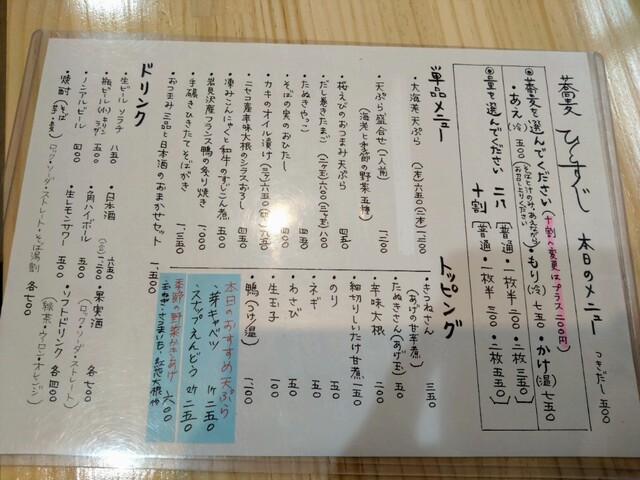 蕎麦 ひとすじ 本日のメニュー つきだし 五〇
・蕎麦を選んでください(十割へ変更はプラス二〇〇円)
・あえ(冷) 五〇〇 ・もり(冷) 七五〇 ・かけ(温) 七五〇
・量を選んでください
二八 [普通・一枚半 二〇〇・二枚 三五〇]
十割 [普通・一枚半 三〇〇・二枚 五五〇]
単品メニュー
・大海老天ぷら (一本)六五〇(二本)一、二〇〇
・天ぷら盛合せ(一人前) 一、二〇〇
(海老と季節の野菜五種)
・桜えびのおつまみ天ぷら 四五〇
・だし巻きたまご (三ヶ玉)六〇〇(二ヶ玉)
・たぬきやっこ
・そばの実のおひたし
・カキのオイル漬け
・ニセコ産辛味大根のシラスおろし 四五〇
・凍みこんにゃくと和牛のすじこん煮 五〇〇
・岩見沢産フランス鴨の炙り焼き 一、〇〇〇
・手碾きひきたてそばがき 一、三五〇
・おつまみ三品と日本酒のおまかせセット 一、五〇〇
トッピング
・きつねさん 三五〇
(あげの甘辛煮)
・たぬきさん(あげ玉) 五〇
・辛味大根 二〇〇
・細切りしいたけ甘煮 一五〇
・のり 五〇
・ネギ 五〇
・わさび 五〇
・生玉子 一〇〇
・鴨(つけ/温)
本日のおすすめ天ぷら
・芽キャベツ 1ケ 二五〇
・スナップえんどう 2ケ 二五〇
季節の野菜かきあげ 六〇〇
ドリンク
・生ビール ソラチ 八五〇
・瓶ビール(小) キリン ラガー 五〇〇
・ノンアルビール 四〇〇
・焼酎(そば・芋・麦) ロック・ソーダ・ストレート・そば湯割 各七〇〇
・日本酒 六五〇
・角ハイボール 五〇〇
・生レモンサワー 五〇〇
・果実酒 各七〇〇
(ロック・ソーダ・ストレート)
・ソフトドリンク 各四〇〇
(緑茶・ウーロン・オレンジ)